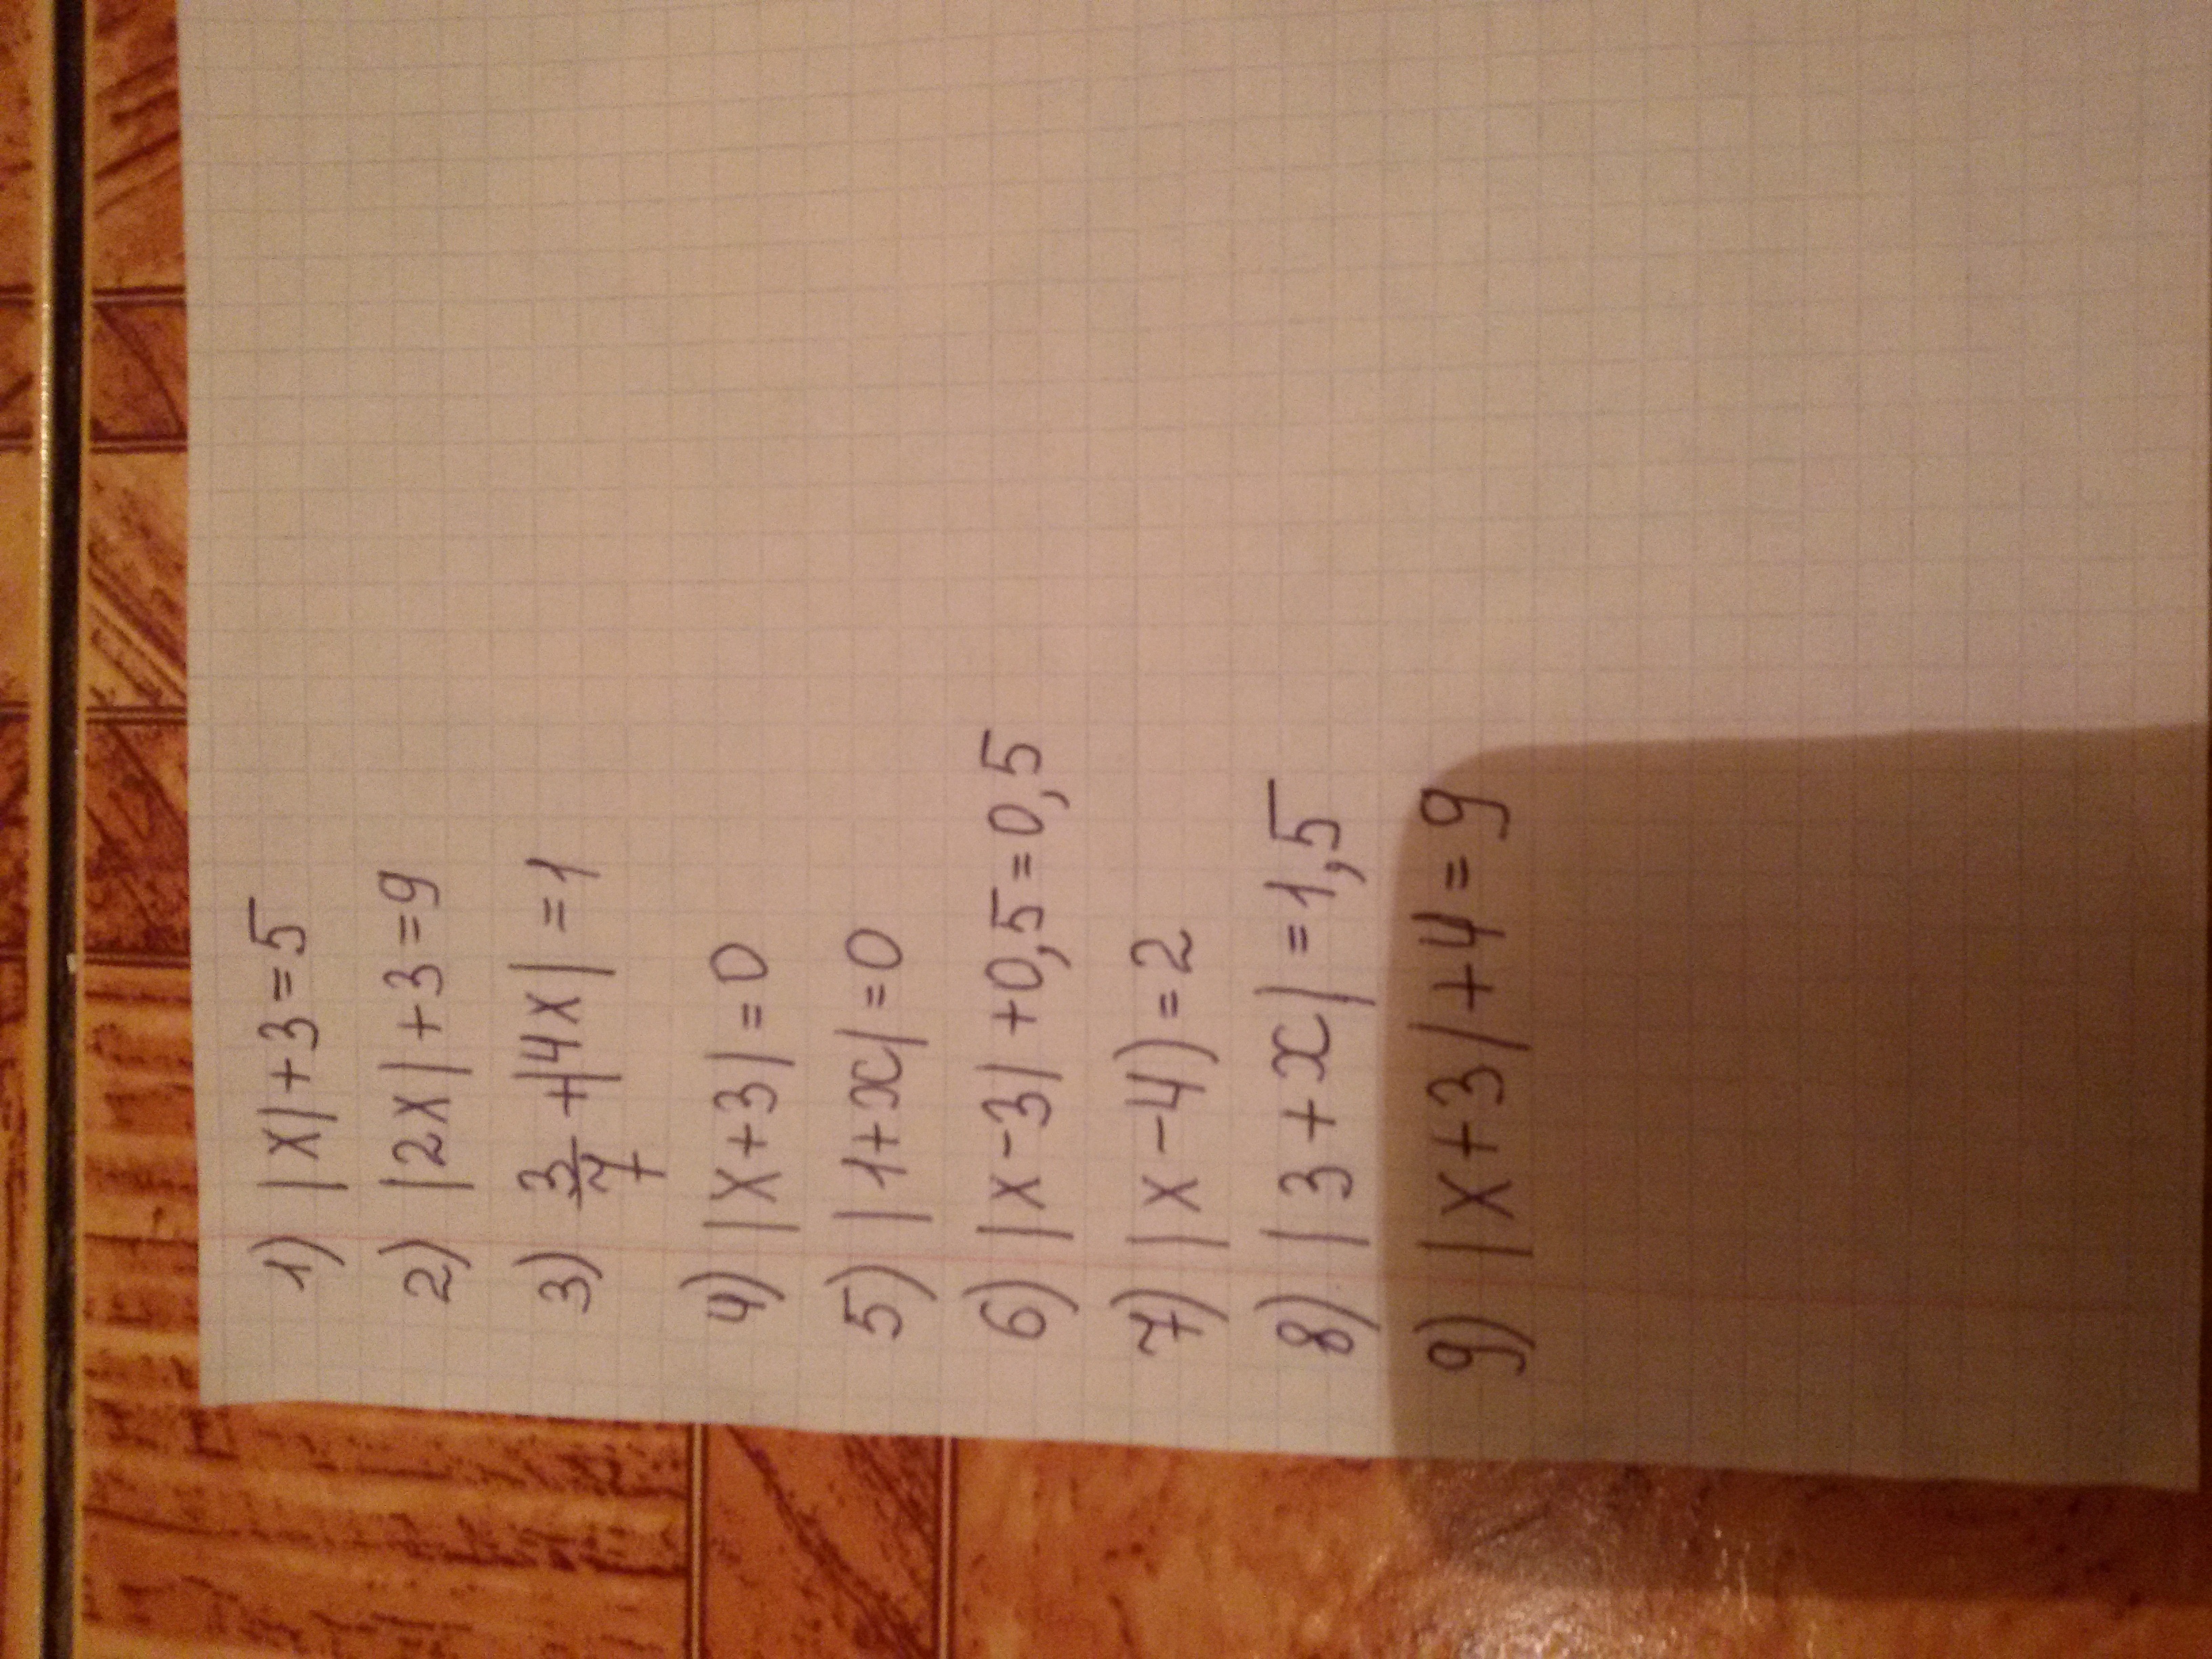 1) |x|+3=5
2) |2x|+3=9
3) 3/7+|4x|=1
4) |x+3|=0
5) |1+x|=0
6) |x-3|+0,5=0,5
7) |x-4)=2
8) |3+x|=1,5
9) |x+3|+4=9